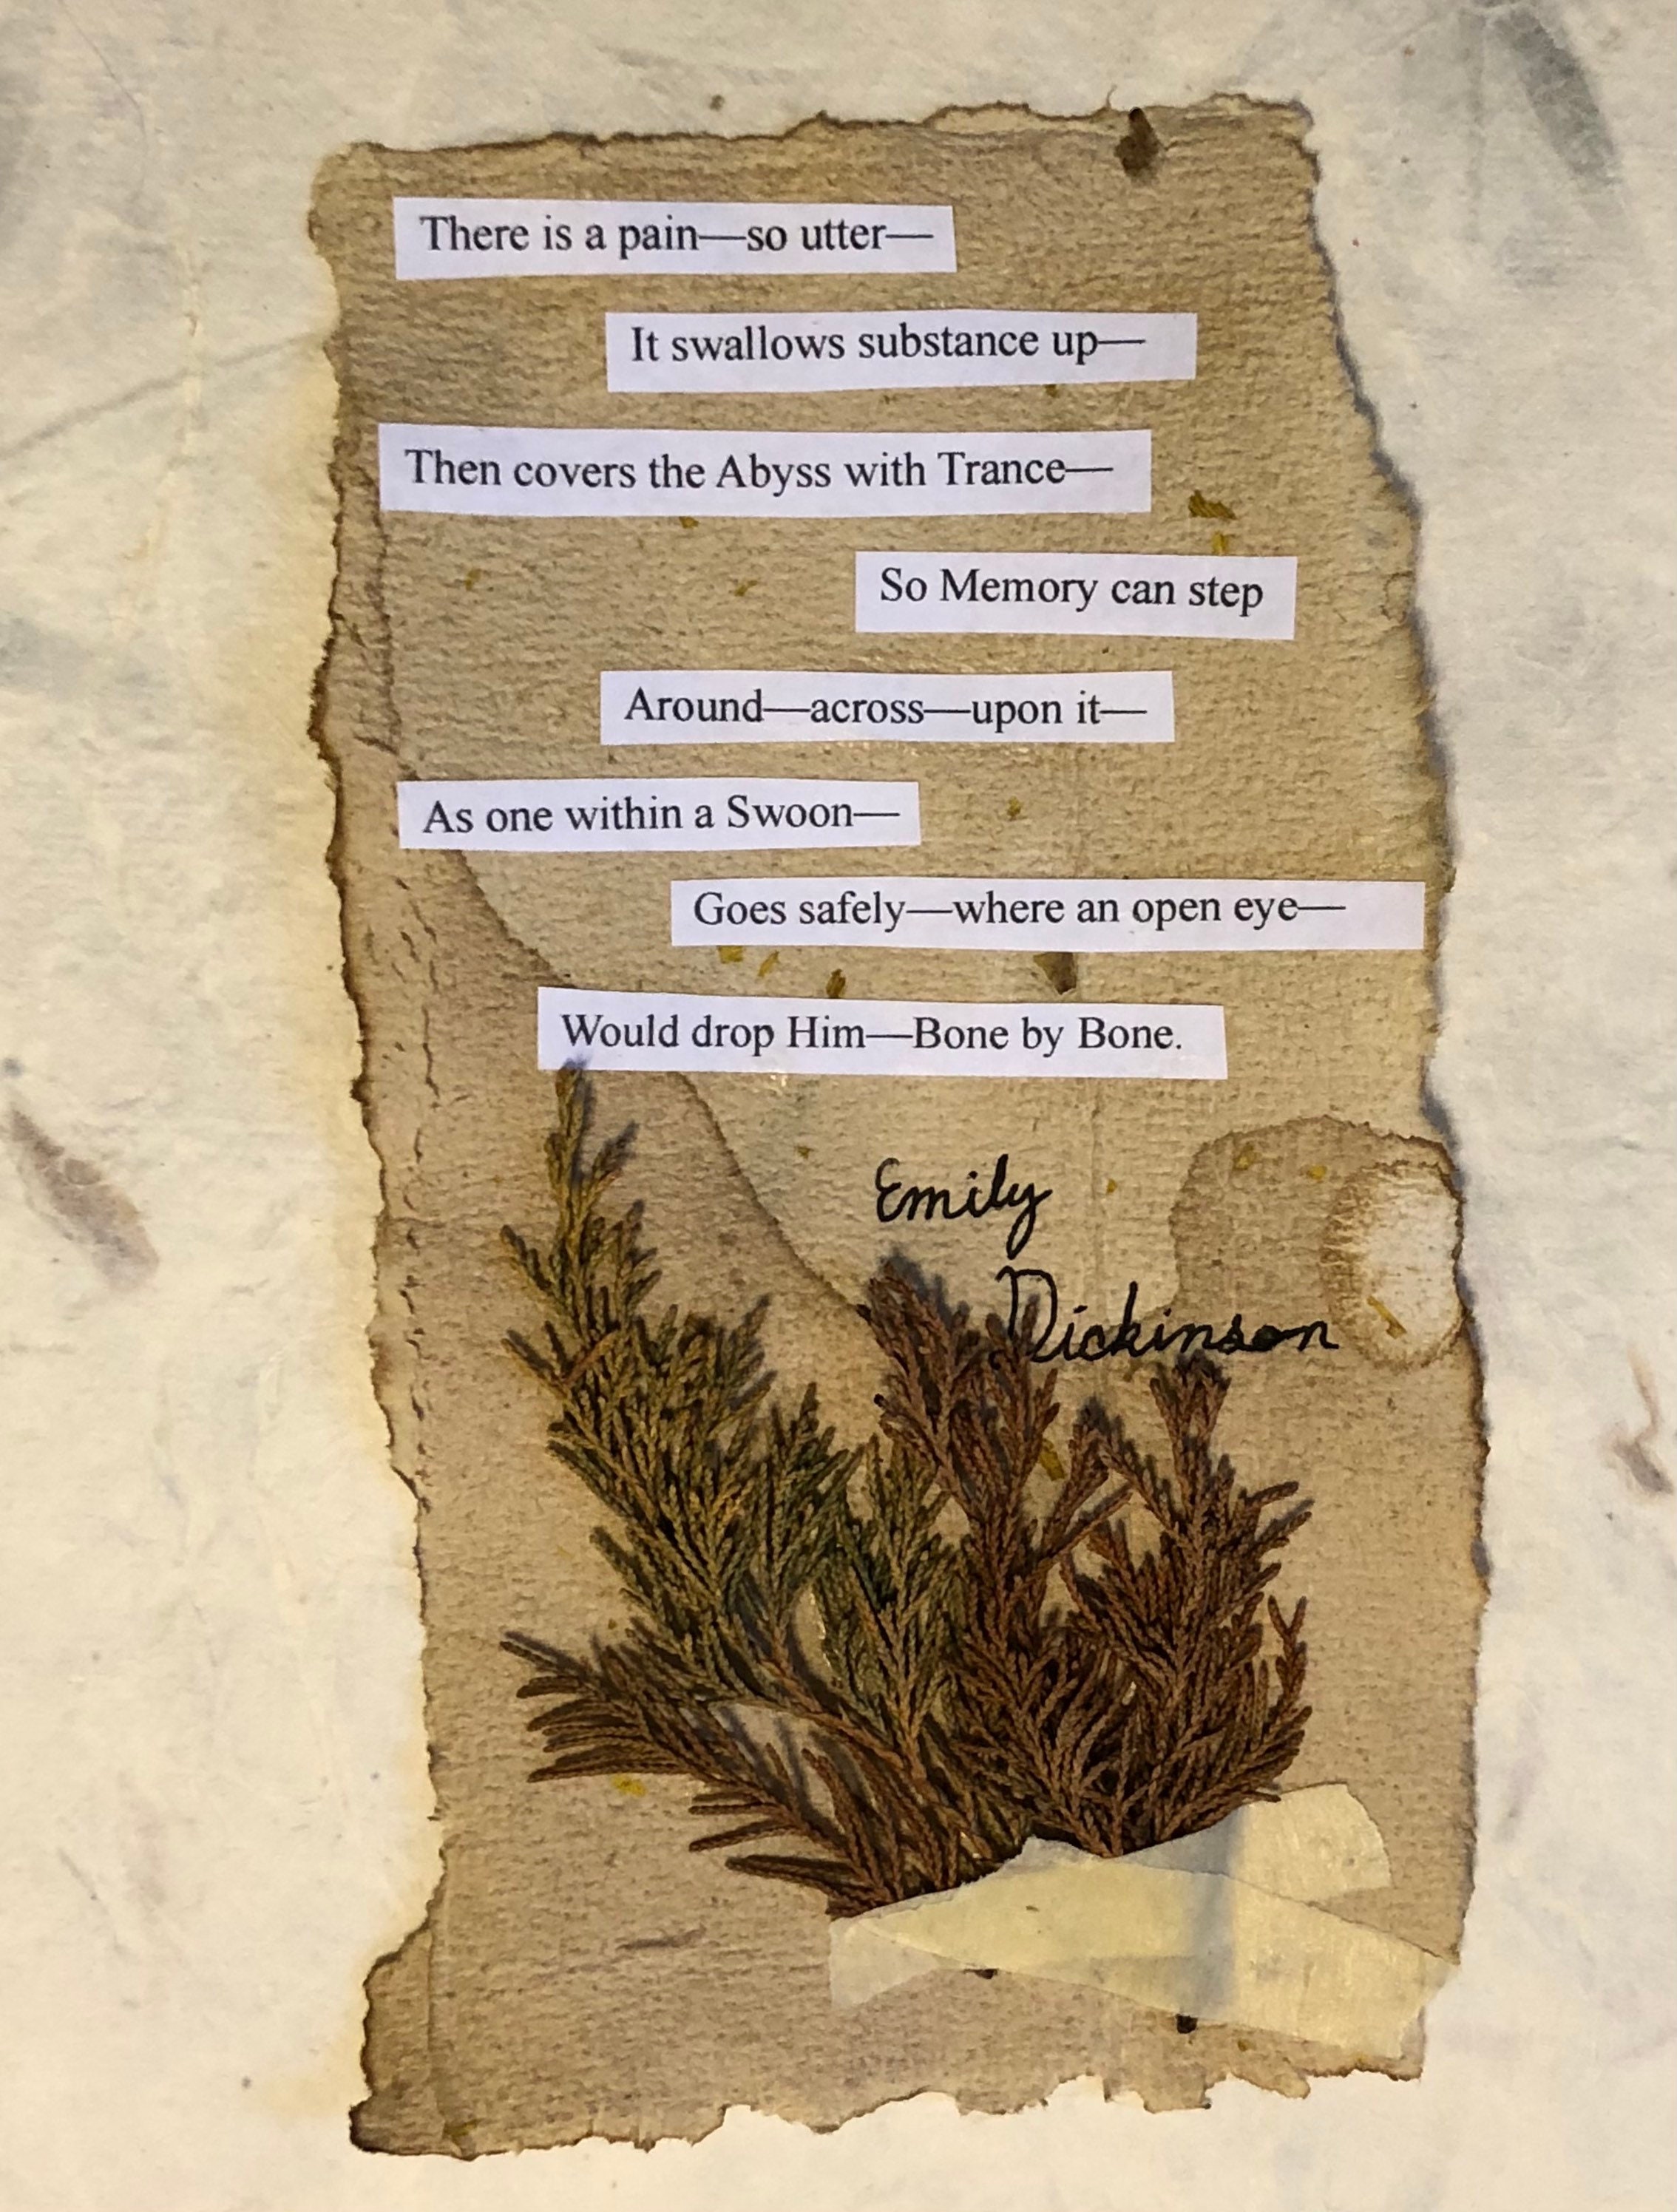 There is a pain—so utter—
It swallows substance up—
Then covers the Abyss with Trance—
So Memory can step
Around—across—upon it—
As one within a Swoon—
Goes safely—where an open eye—
Would drop Him—Bone by Bone.
Emily
Dickinson